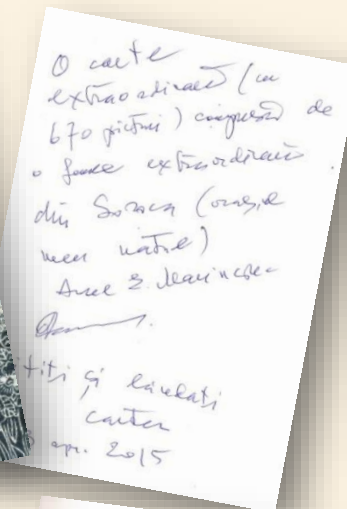 O carte
extraordinară (cu
670 picturi) compusă de
o foarte extraordinară
din Soroca (orașul
meu natal)
Marinciuc
și lăudați
cartea
apr. 2015